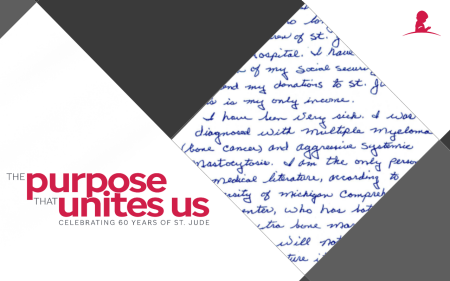 THE
purpose
THAT
unites us
CELEBRATING 60 YEARS OF ST. JUDE
of St.
hospital. I have
of my Social Securi
nd my donations to St. Ju
is is my only income.
I have been very sick. I was
diagnosed with Multiple Myeloma
(bone cancer) and aggressive Systemic
Mastocytosis. I am the only perso
medical literature, according to
sity of Michigan Compreh
enter, who has
bone
will